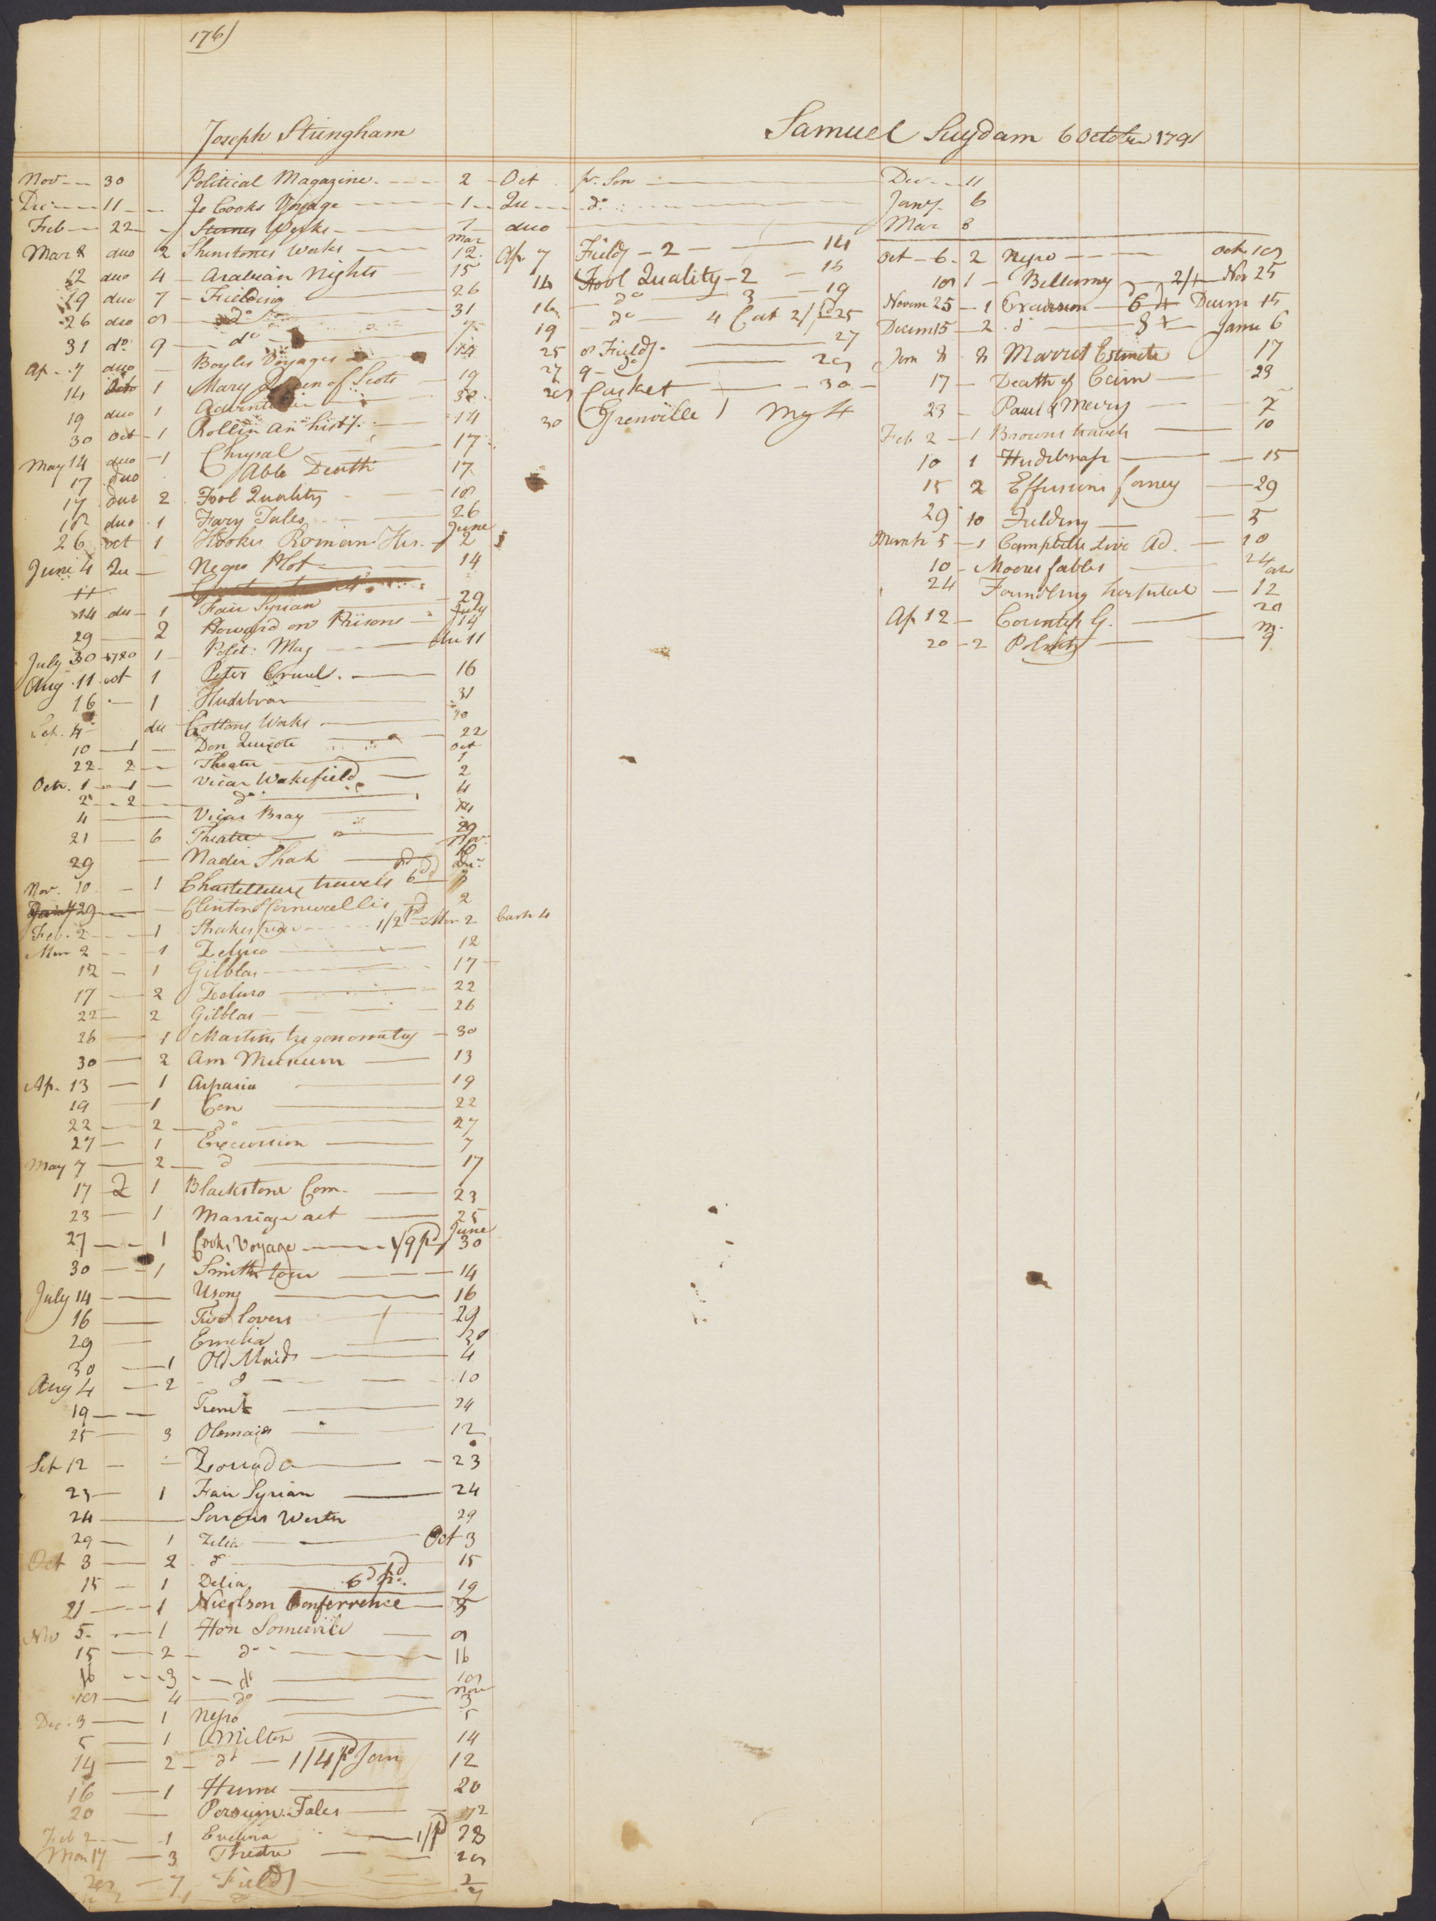 176
Joseph Stringham
Nov 30 Political Magazine 2
Dec 11 Jo Cooks Voyage 1
Feb 22 Sterns Works 7
Mar 8 duo 2 Shinstones Works Mar 12
12 duo 4 Arabian Nights 15
19 duo 7 Fielding 26
26 duo 8 do 31
31 do 9 do 7
Ap 7 duo Boyles Voyages 14
14 Oct 1 Mary Queen of Scots 19
19 duo 1 30
30 Oct 1 Rollin An histy 14
May 14 duo 1 Chrysal 17
17 duo Able Death 17
17 duo 2 Fool Quality 18
18 duo 1 Fary Tales 26
26 oct 1 Hooks Roman His. June 2
June 4 Qu Negro Plot 14
11
14 du 1 Fair Syrian 29
29 2 Howard on Prisons July 14
July 30 1780 1 Polit: Mag Au 11
Aug 11 oct 1 Peter Cruel. 16
16 1 Hudibras 31
Sep. 4 du Cottons Works 10
10 1 Don Quixote 22
22 2 Theater Oct 1
Octr. 1 1 Vicar Wakefield 2
2 2 do 4
4 Vicar Bray
21 6 Theatre 29
29 Nader Shah Nov 10
Nov. 10 1 Chastelleux travels 6d
29 Clinton & Cornwallis 2
Feb. 2 1 Shakespear 1/2 pd Mar 2 Cash 4
Mar 2 1 Zeluco 12
12 1 Gilblas 17
17 2 Zeluco 22
22 2 Gilblas 26
26 1 Martins trigonometry 30
30 2 Am Museum 13
Ap. 13 1 Aspasia 19
19 1 Con 22
22 2 do 27
27 1 Excursion 7
May 7 2 d 17
17 2 1 Blackstone Com. 23
23 1 Marriage act 25
27 1 Cooks Voyage 1/9 pd June 30
30 1 Smiths tour 14
July 14 Usong 16
16 Two Lovers 29
29 Emelia 30
30 1 Old Maids 4
Aug 4 2 d 10
19 Trenck 24
25 3 Olemaids 12
Sep 12 Zorada 23
23 1 Fair Syrian 24
24 Sorrows Werter 29
29 1 Zelia Oct 3
Oct 3 2 d 15
15 1 Delia 6d pd. 19
21 1 Nicolson Conferrence 5
Nov 5 1 Hon Somerville 9
15 2 do 16
16 3 do 18
18 4 do Nov 3
Dec 3 1 Nepo 5
5 1 A Milton 14
14 2 do 1/4 pd Jan 12
16 1 Hume 20
20 Persian Tales
Feb 2 1 Evelina 1/pd 28
Mar 17 3 Theatre 28
28 7 Field 2
Oct pr. Son
Qu do
duo
Ap 7 Field 2 14
14 Fool Quality 2 16
16 do 3 19
19 do 4 Cat 2/ 25
25 8 Field. 27
27 9 do 28
28 Casket 30
30 Grenville 1 My 4
Samuel Suydam 6 October 1791
Dec 11
Jany 6
Mar 8
Oct 6 2 Nepo Octr 18
18 1 Bellamy 2/ Nov 25
Novem 25 1 Excursion 6 Decem 15
Decem 15 2 d 8 Janu 6
Jan 8 8 17
17 Death of Cain 23
23 Paul & Mary 2
Feb 2 1 Browns travels 10
10 1 Hudibras 15
15 2 Effusions fancy 29
29 10 Fielding 5
March 5 1 Campbells Live Ad. 10
10 Moores fables 24
24 Foundling hospital 12
Ap 12 Countess G. 20
20 2 m. 9